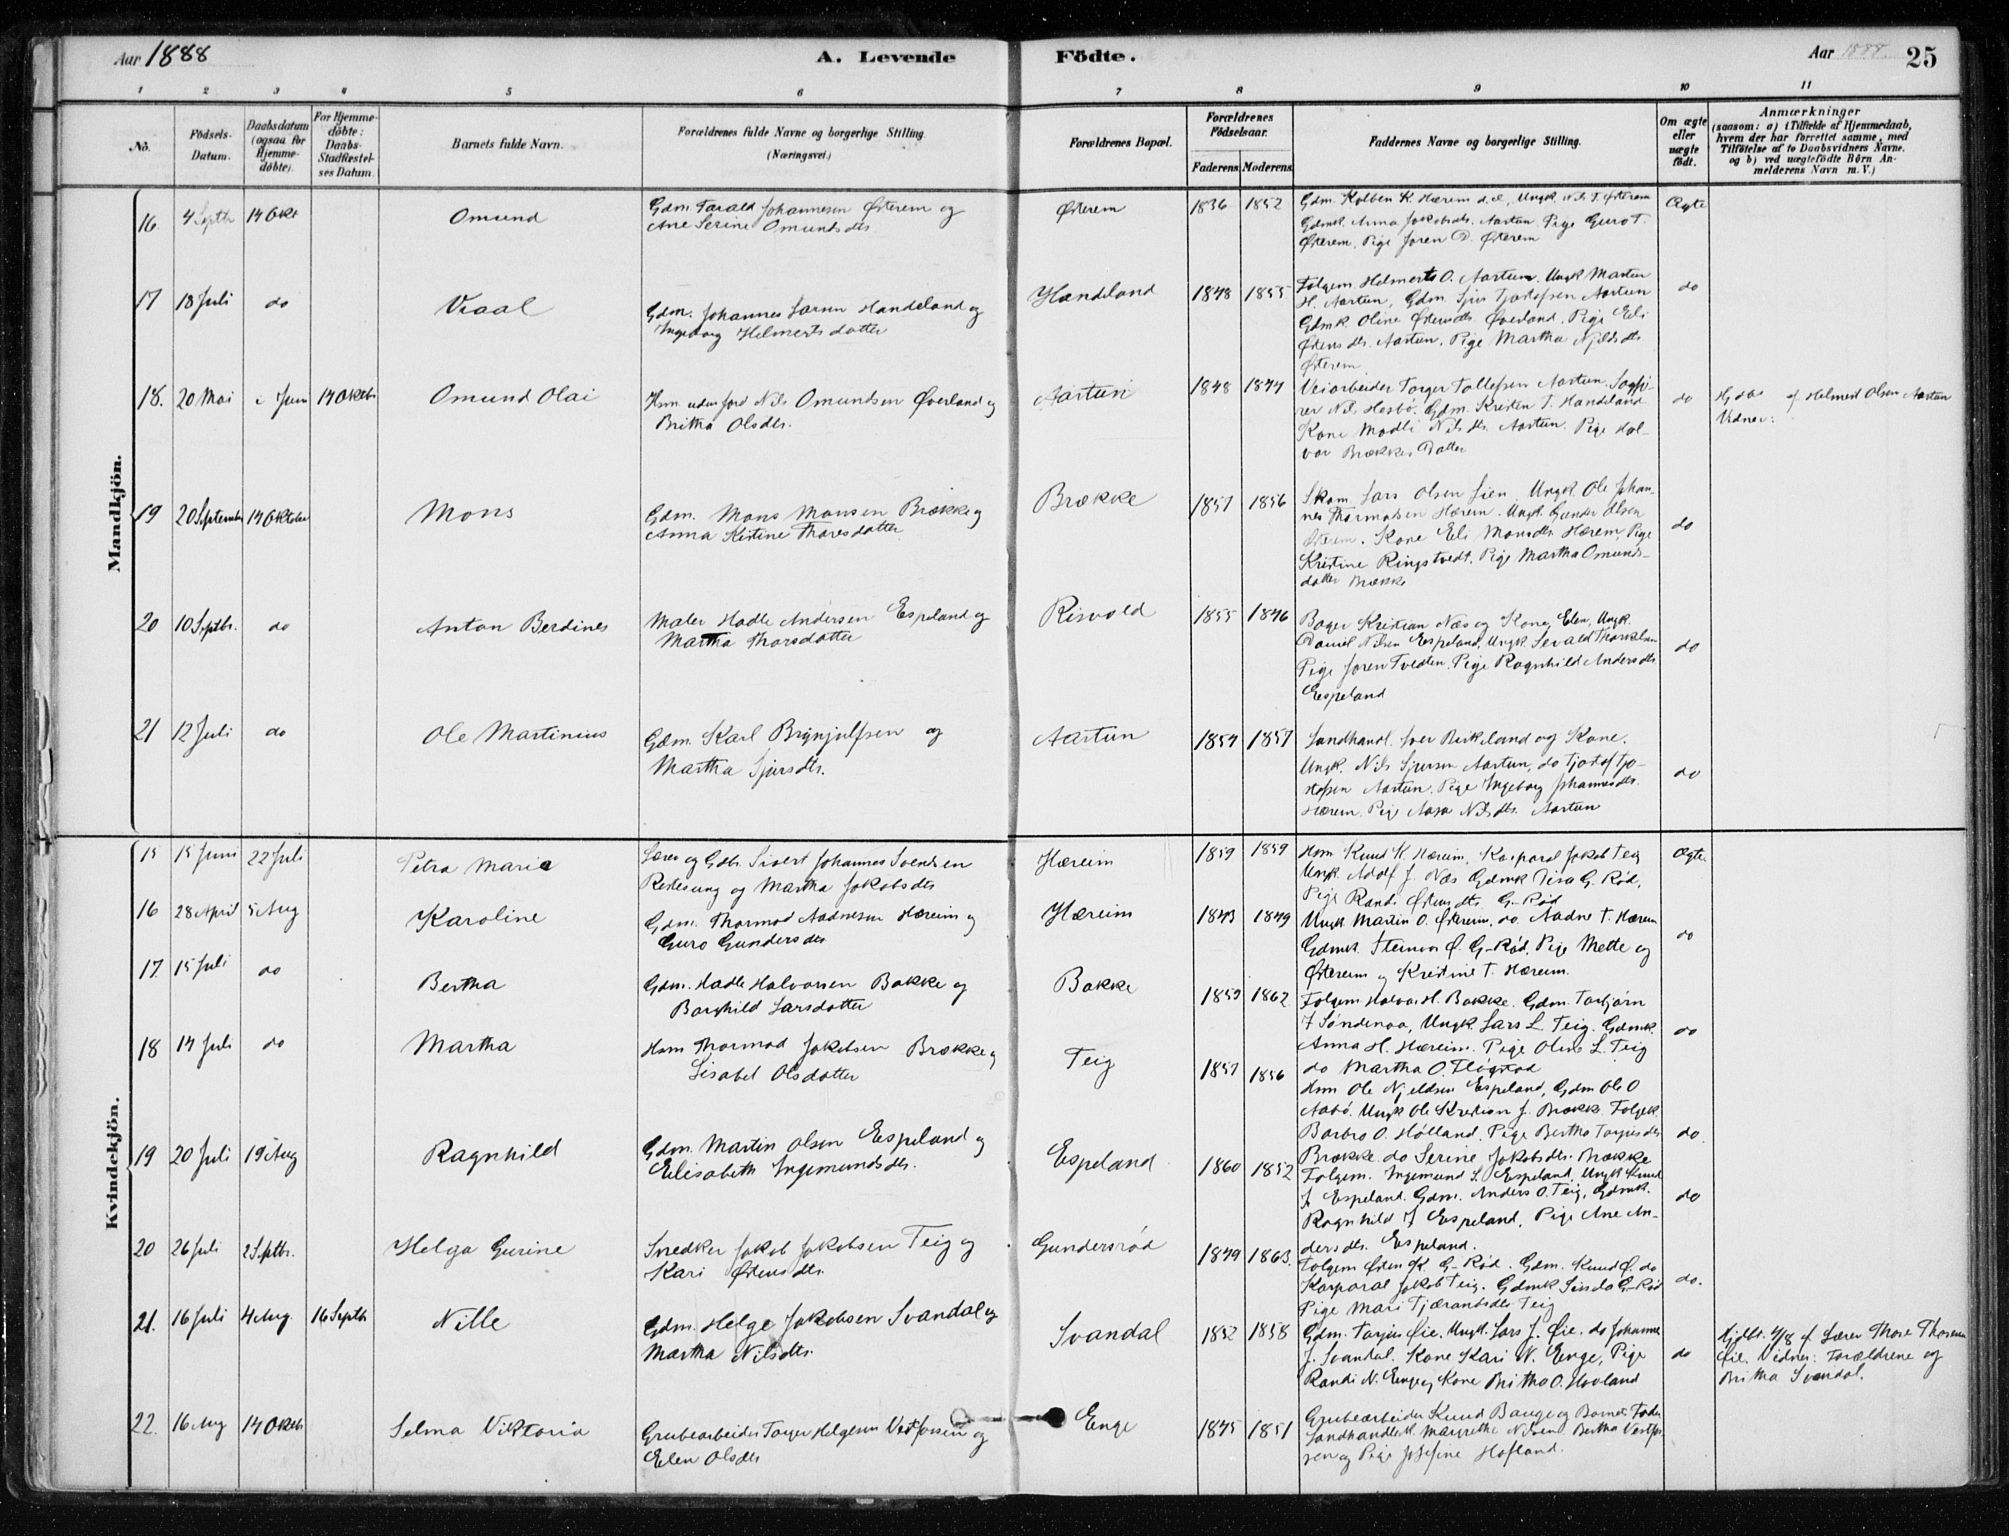 Aar 1888
A. Levende
Födte.
Aar 1888.
25
1 2 3 4 5 6 7 8 9 10 11
No.
Födsels-
Datum.
Daabsdatum
(ogsaa for
Hjemme-
døbte).
For Hjemme-
døbte:
Daabs-
Stadfæstel-
ses Datum.
Barnets fulde Navn.
Forældrenes fulde Navne og borgerlige Stilling.
(Næringsvei.)
Forældrenes Bopæl.
Forældrenes
Födselsaar.
Faderens. Moderens.
Faddernes Navne og borgerlige Stilling.
Om ægte
eller
uægte
født.
Anmærkninger
(saasom: a) i Tilfælde af Hjemmedaab,
hvem der har forrettet samme, med
Tilföielse af to Daabsvidners Navne.
og b) ved uægtefödte Börn An-
melderens Navn m. V.)
Mandkjön.
16. 4 Septb 14 Okt
Omund
Gdm. Tarald Johannesen Østerem og
Ane Serine Omundsdtr.
Østerem
1836 1852
Gdm. Kolben K. Hærem d.e., Ungk. Nils T. Østerem
Gdmk. Anna Jakobsdtr. Aartun. Pige Guro T.
Østerem, Pige Joren D. Østerem
Ægte
17 18 Juli do
Vraal
Gdm. Johannes Larsen Handeland og
Ingeborg Helmerts datter
Handeland
1848 1855
Folgem. Helmert O. Aartun. Ungk Martin
H. Aartun, Gdm. Sjur Tjostofsen Aartun
Gdmk. Oline Østensdtr. Øverland. Pige Eli
Østensdtr. Aartun, Pige Martha Njeldsdtr.
Østerem.
do
18. 20 Mai Juni 14 Oktb.
Omund Olai
Hsm. uden Jord Nils Omundsen Øverland og
Britha Olsdtr.
Aartun
1848 1844
Veiarbeider Torger Tollefsen Aartun.
Nils Hesbø. Gdm. Kristen T. Handeland
Kone Modli Nilsdtr. Aartun. Pige Hal-
vor Brækkes Datter
do
Hjdbt af Helmert Olsen Aartun
Vidner:
19 20 September 14 Oktober
Mons
Gdm. Mons Monsen Brække og
Anna Kistine Thoresdatter
Brække
1857 1856
Skom. Lars Olsen Lien, Ungk. Ole Johan-
nes Thormodsen Hærem. Ungk. Gunder Olsen
Østerem. Kone Eli Monsdtr. Hærem, Pige
Kristine Ringstvedt, Pige Martha Omunds-
datter Brække
do
20 10 Septbr. do
Anton Berdines
Maler Hadle Andersen Espeland og
Martha Thorsdatter
Risvold
1855 1846
Bager Kristian Næs og Kone Elen, Ungk.
Daniel Nilsen Espeland, Ungk. Sevald Thorkelsen
Pige Joren Tvedten. Pige Ragnhild Andersdtr.
Espeland
do
21 12 Juli do
Ole Martinius
Gdm. Karl Brynjulfsen og
Martha Sjursdtr.
Aartun
1854 1857
Landhandl. Iver Birkeland og Kone,
Ungk. Nils Sjursen Aartun, do Tjostof Tjo-
stofsen Aartun. Pige Ingeborg Johannesdtr.
Hærem, Pige Aasa Nilsdtr. Aartun
do
Kvindekjön.
15 15 Juni 22 Juli
Petra Marie
Lærer og Gdbr. Sivert Johannes Svendsen
og Martha Jakobsdtr
Hæreim
1859 1859
Hsm Knud K. Hæreim, Korporal Jakob Teig
Ungk. Adolf J. Næs Gdmk G. Rød,
Pige Randi Østensdtr. G-Rød
Ægte
16 28 April 5 Aug
Karoline
Gdm. Thormod Aadnesen Hæreim og
Guro Gundersdtr
Hæreim
1843 1849
Ungk. Martin O. Østereim, do. Aadne T. Hærem
Gdmk. Steinvor Ø. G-Rød, Pige Mette og
Østereim og Kristine T. Hæreim.
do
17. 15 Juli do
Bertha
Gdm. Hadle Halvorsen Bakke og
Borghild Larsdatter
Bakke
1859 1862
Folgem. Halvor H. Bakke. Gdm. Torbjørn
T Søndenaa, Ungk. Lars L. Teig. Gdmk.
Anna H. Hæreim. Pige Oline L. Teig
do Martha O. Fløgstad
do
18 14 Juli do
Martha
Hsm Thormod Jakobsen Brække og
Lisabet Olsdatter
Teig
1857 1856
Hsm Ole Njeldsen Espeland, Gdm Ole O
Aabø. Ungk Ole Kristian J. Brække. Folgek.
Barbro O. Hølland. Pige Bertha Torgersdtr
Brække do Serine Jakobsdtr. Brække
do.
19 20 Juli 19 Aug
Ragnhild
Gdm. Martin Olsen Espeland og
Elisabeth Ingemundsdtr.
Espeland
1860 1852
Folgem. Ingemund S. Espeland. Ungk Knud
J. Espeland. Gdm. Anders O. Teig, Gdmk.
Ragnhild J Espeland. Pige Ane An-
dersdtr. Espeland.
do
20 26 Juli 2 Septbr.
Helga Gurine
Snedker Jakob Jakobsen Teig og
Kari Østensdtr.
Gundersrød
1849 1863.
Folgem Østen K. G-Rød. Gdm. Knud Ø. do
Korporal Jakob Teig. Gdmk G-Rød
Pige Mari Tjerandsdtr. Teig
do.
21. 16 Juli 4 Aug. 16 Septb.
Nille
Gdm. Helge Jakobsen Svandal og
Martha Nilsdtr.
Svandal
1852 1858
Gdm. Torjus Øie. Ungk. Lars J. Øie, do Johannes
J. Svandal. Kone Kari N. Enge, Pige
Randi N. Enge og Kone Britha O. Hovland
do
Hjdbt. 4/8 af Lærer Thore Thoresen
Øie. Vidner: Forældrene og
Britha Svandal.
22. 16 Aug 14 Oktb.
Selma Viktoria
Grubearbeider Torger Helgesen Vestfossen og
Elen Olsdtr
Enge
1845 1851
Grubearbeider Knud Bauge og Barnets Fader
Landhandlersk. Margrethe Nilsen. Bertha Vestfos-
sen og Pige Josefine Hofland.